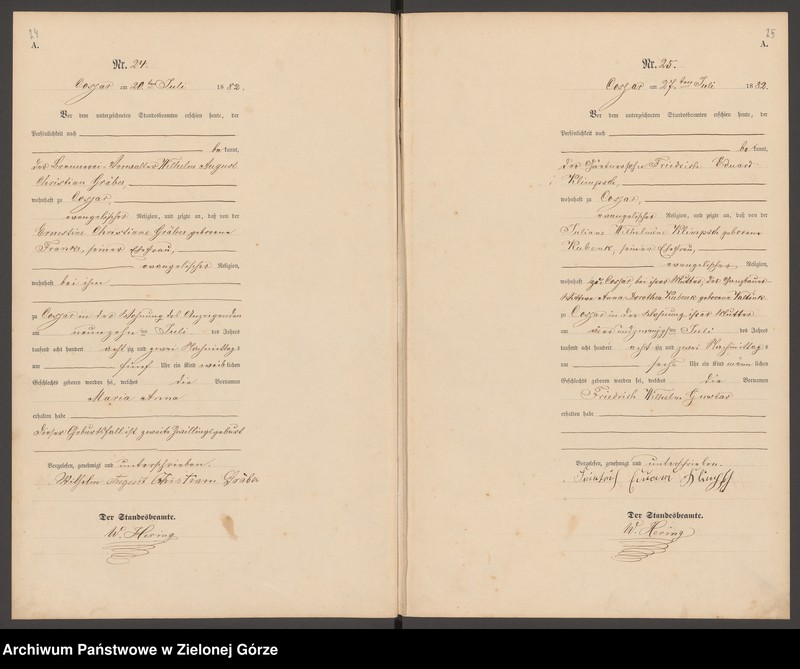 24
A.
Nr. 24.
Cossar am 20. ten Juli 1882.
Vor dem unterzeichneten Standesbeamten erschien heute, der
Persönlichkeit nach
be kannt,
der Brennerei-Verwalter Wilhelm August
Christian Gräber,
wohnhaft zu Cossar,
evangelischer Religion, und zeigte an, daß von der
Ernestine Christiane Gräber geborene
Franke, seiner Ehefrau,
evangelischer Religion,
wohnhaft bei ihm
zu Cossar in der Wohnung des Anzeigenden
am neunzehn ten Juli des Jahres
tausend acht hundert acht zig und zwei Nachmittags
um fünf Uhr ein Kind weib lichen
Geschlechts geboren worden sei, welches die Vornamen
Maria Anna
erhalten habe
Dieser Geburtsfall ist zweite Zwillingsgeburt
Vorgelesen, genehmigt und unterschrieben.
Wilhelm August Christian Gräber
Der Standesbeamte.
W. Hering
25
A.
Nr. 25.
Cossar am 27. ten Juli 1882.
Vor dem unterzeichneten Standesbeamten erschien heute, der
Persönlichkeit nach
be kannt,
der Gärtnersohn Friedrich Eduard
Klimpsch,
wohnhaft zu Cossar,
evangelischer Religion, und zeigte an, daß von der
Juliane Wilhelmine Klimpsch geborene
Kubenk, seiner Ehefrau,
evangelischer Religion,
wohnhaft zu Cossar, bei ihrer Mutter, der
Anna Dorothea Kubenk geborene
zu Cossar in der Wohnung ihrer Mutter
am vierundzwanzigsten Juli des Jahres
tausend acht hundert acht zig und zwei Nachmittags
um sechs Uhr ein Kind männ lichen
Geschlechts geboren worden sei, welches die Vornamen
Friedrich Wilhelm Gustav
erhalten habe
Vorgelesen, genehmigt und unterschrieben.
Friedrich Eduard
Der Standesbeamte.
W. Hering
Archiwum Państwowe w Zielonej Górze